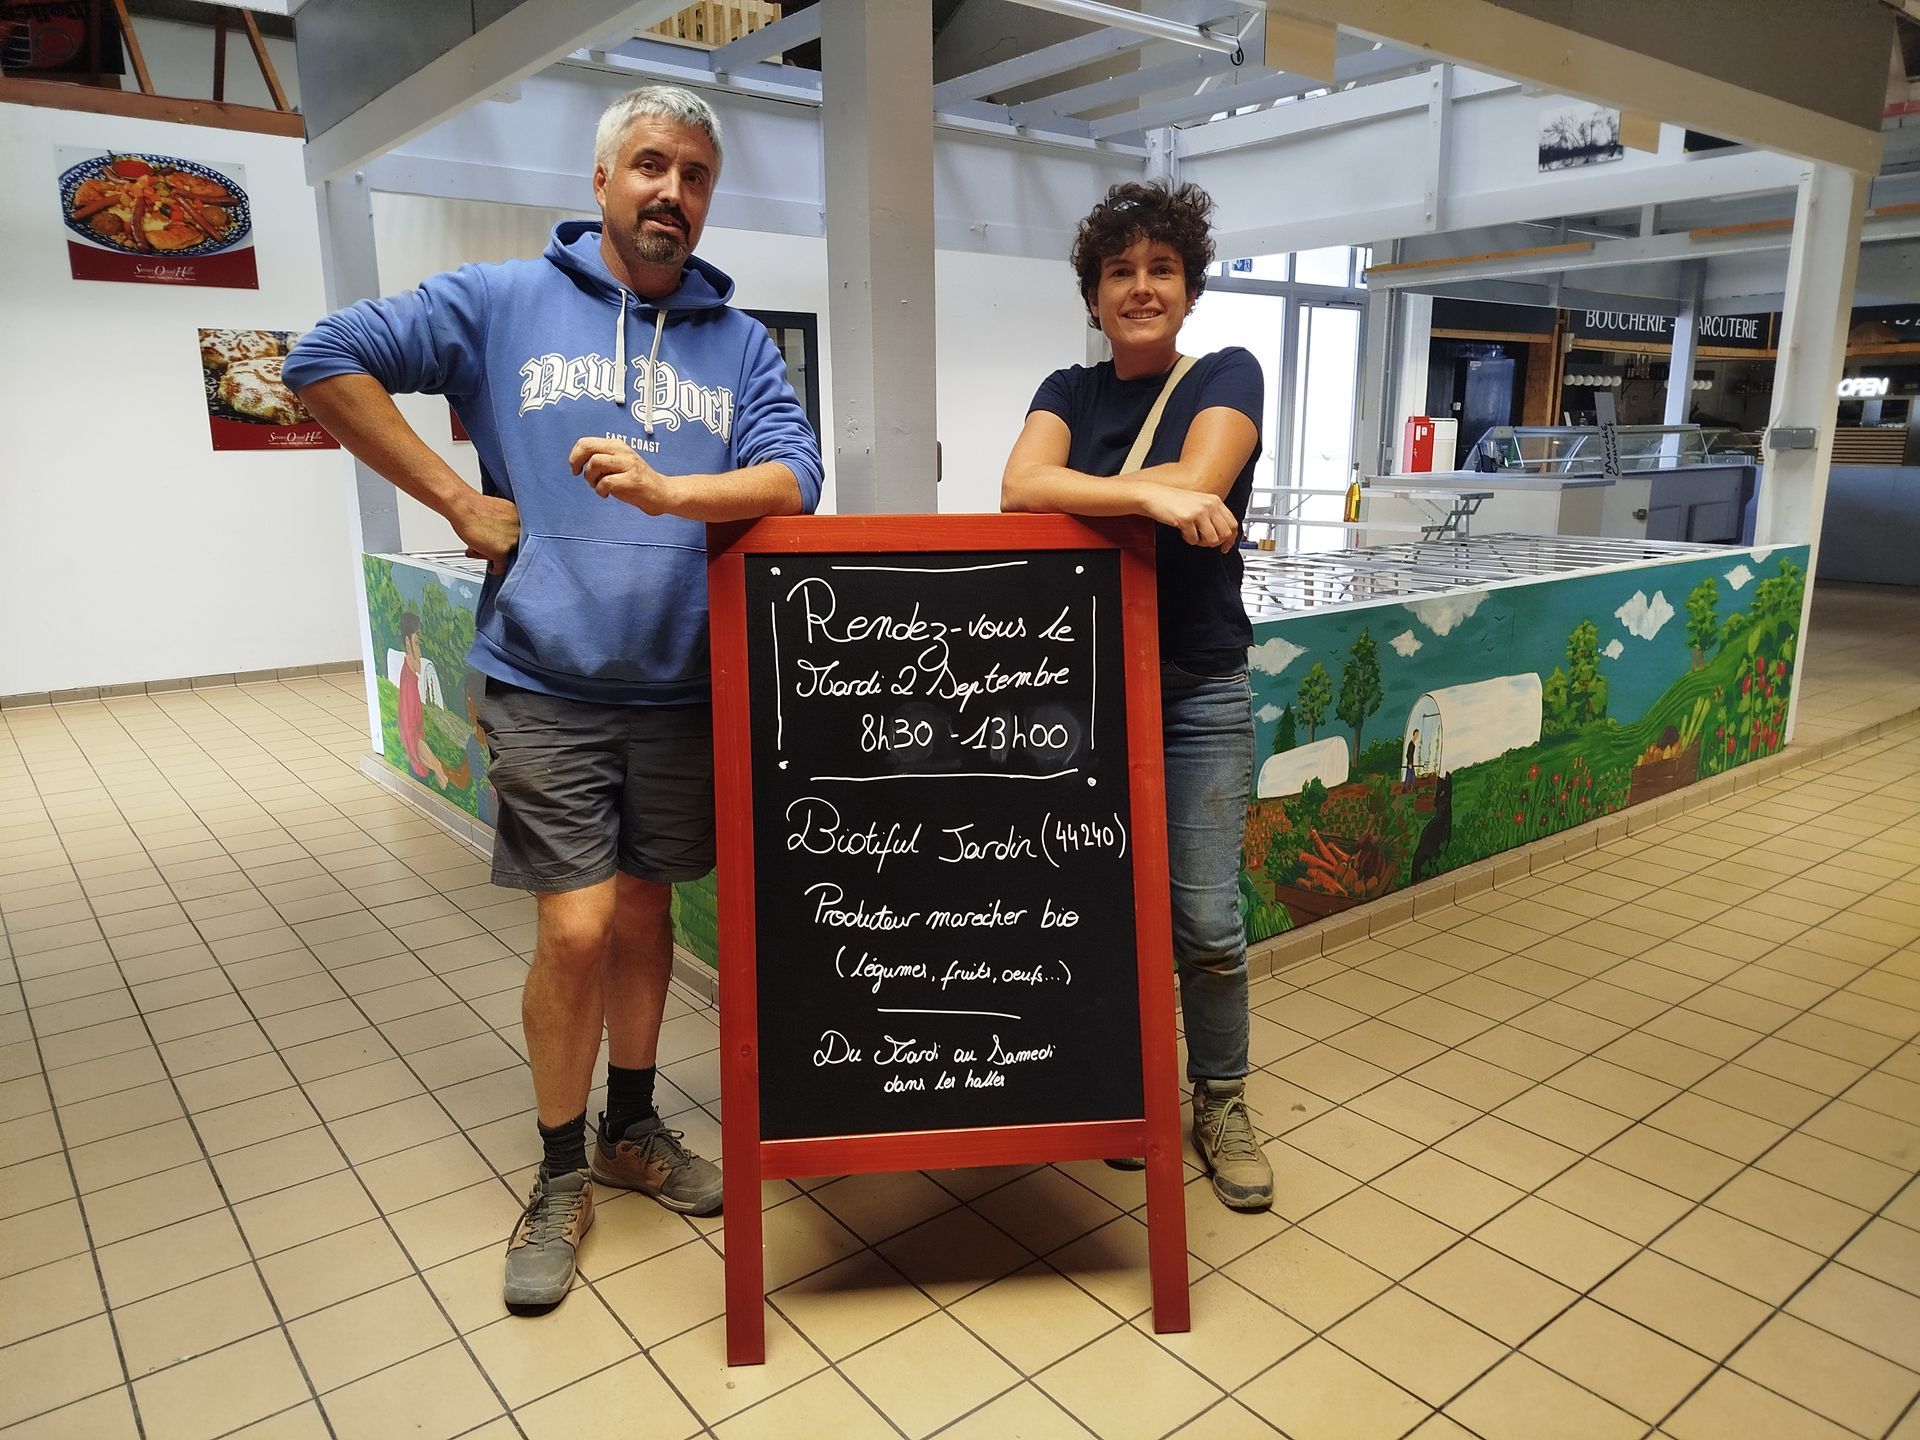 Saveurs Orient Halles
Saveurs Orient Halles
New York
EAST COAST
BOUCHERIE - ARCUTERIE
OPEN
Marché Couvert
Rendez-vous le
Mardi 2 Septembre
8h30 - 13h00
Biotiful Jardin (44240)
Producteur maraîcher bio
(légumes, fruits, oeufs...)
Du Mardi au Samedi
dans les halles